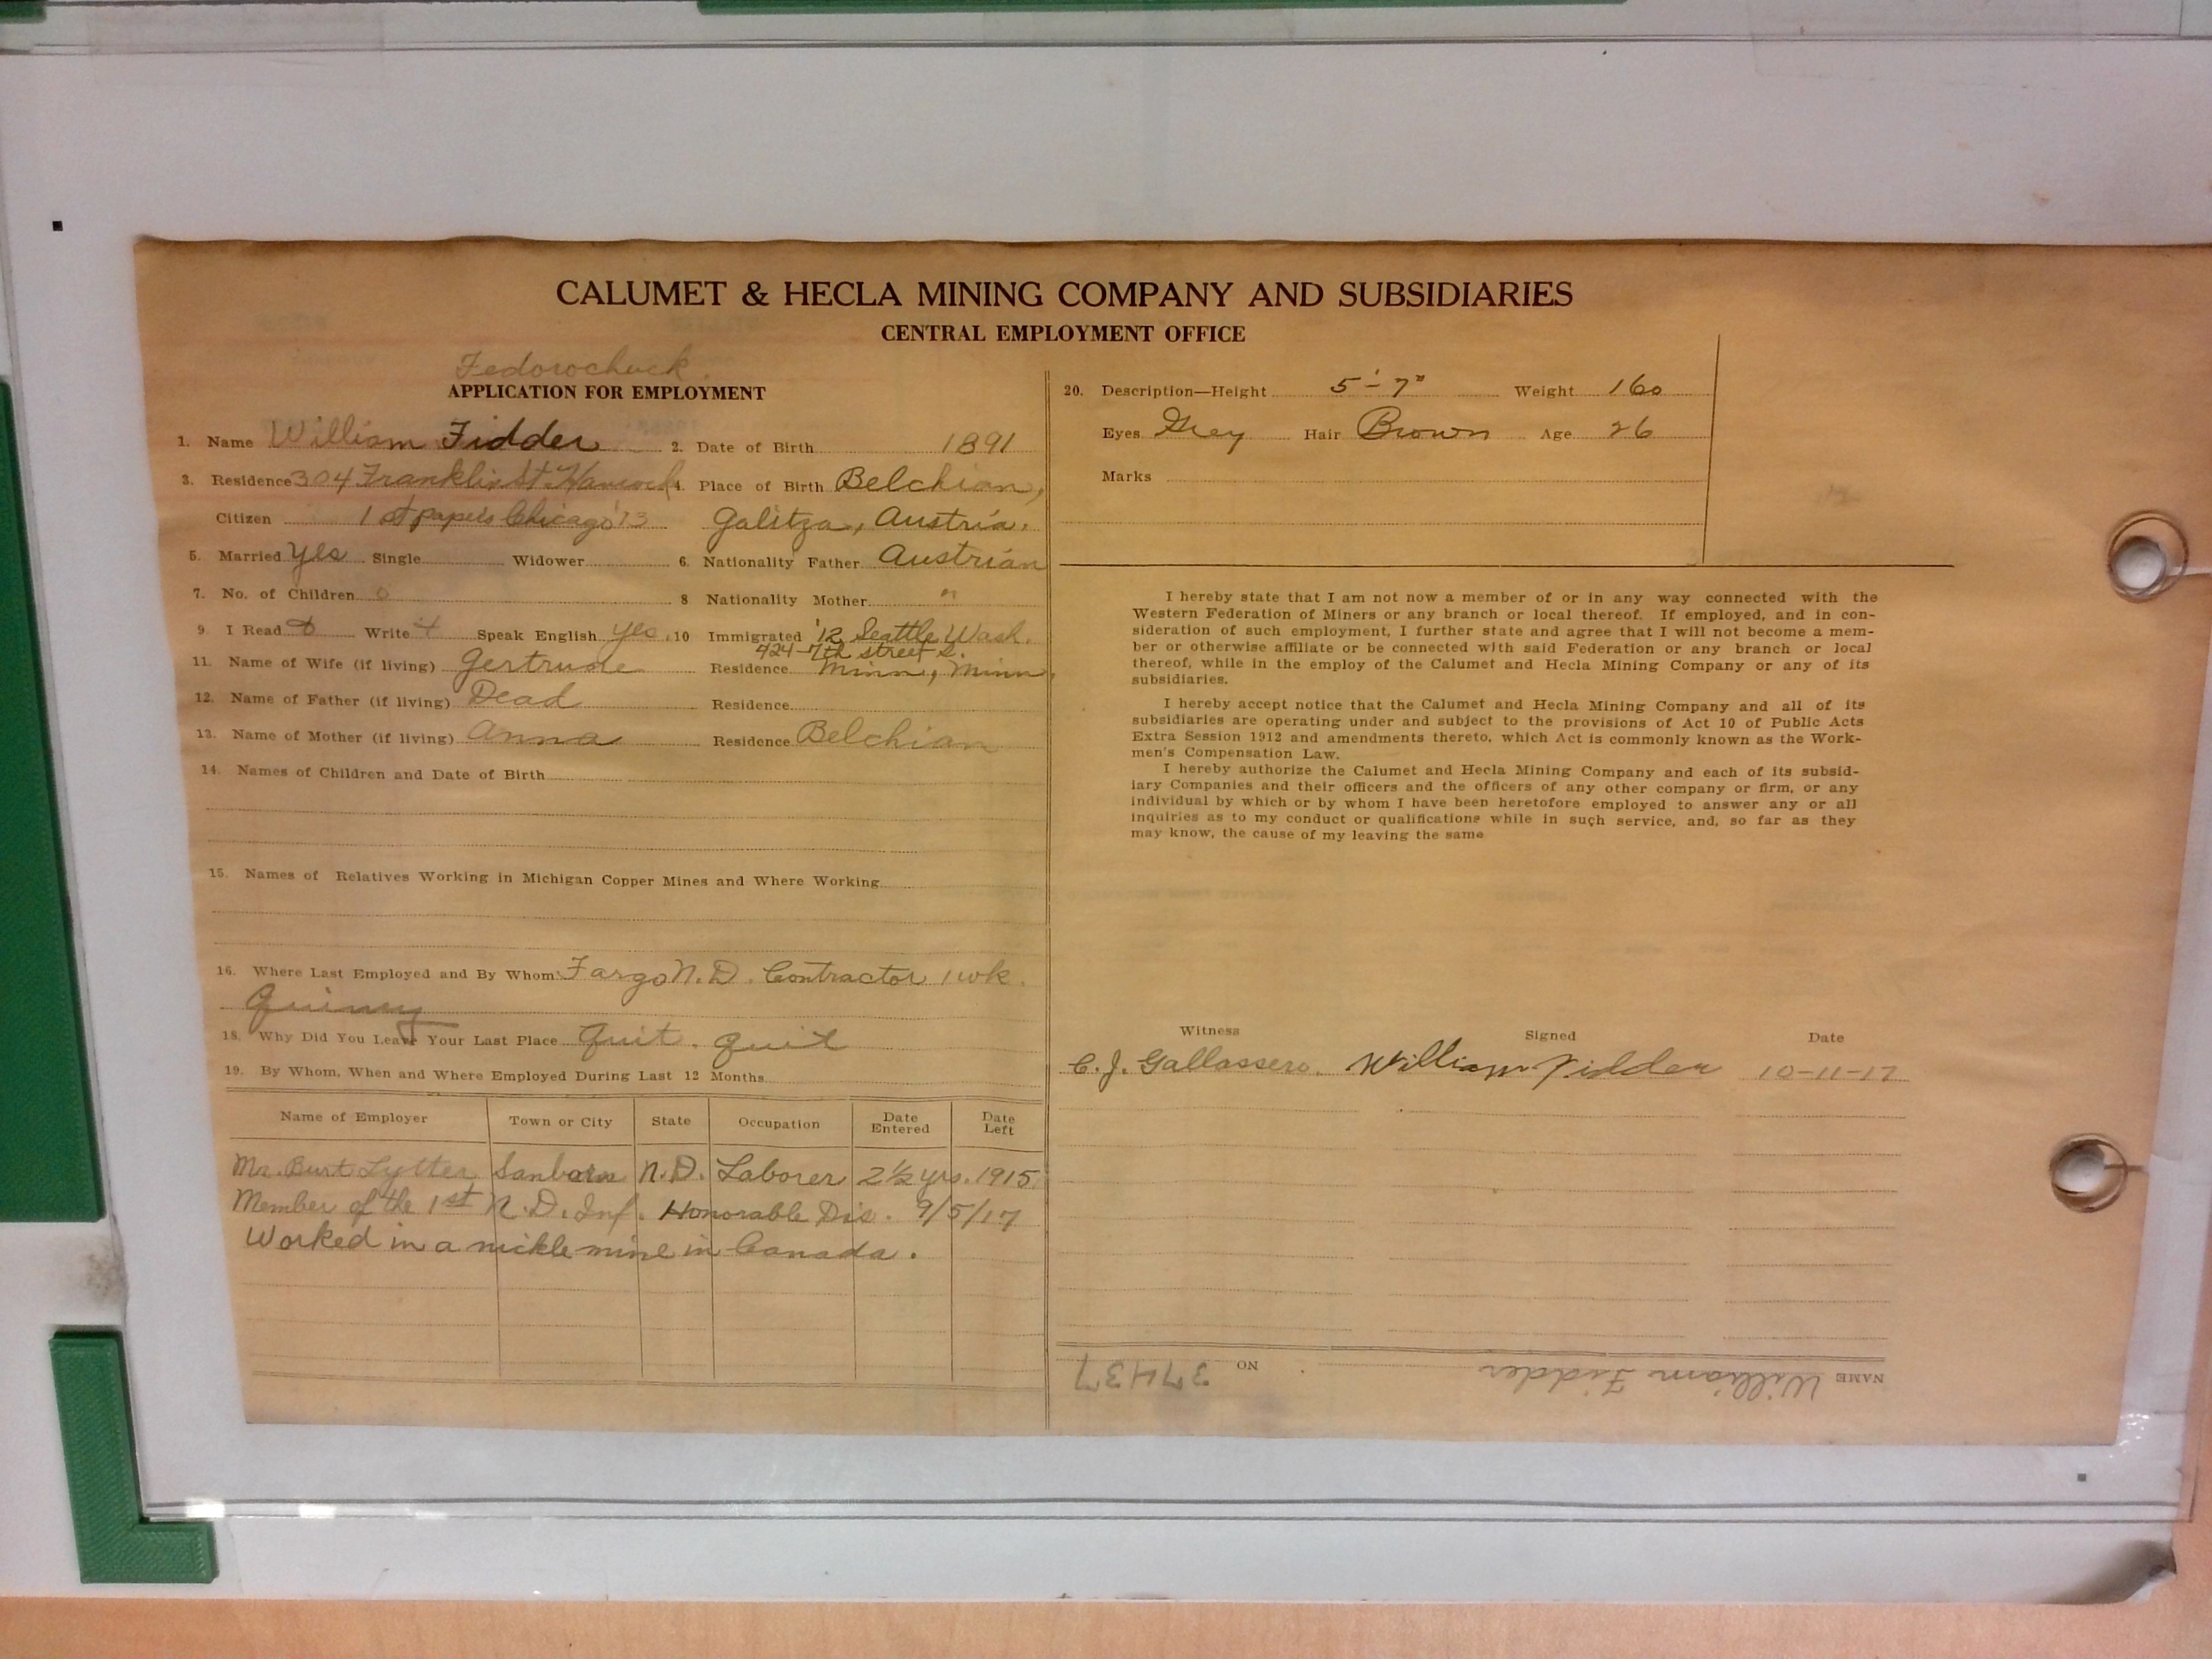 CALUMET & HECLA MINING COMPANY AND SUBSIDIARIES
CENTRAL EMPLOYMENT OFFICE
Fedorochuck
APPLICATION FOR EMPLOYMENT
1. Name William Fidder 2. Date of Birth 1891
3. Residence 304 Franklin St. Hancock 4. Place of Birth Belchian,
Citizen 1st papers Chicago '13 Galitza, Austria.
5. Married Yes Single Widower 6. Nationality Father Austrian
7. No. of Children 0 8 Nationality Mother "
9. I Read Write Speak English yes. 10 Immigrated '12 Seattle Wash.
424-7th street S.
11. Name of Wife (if living) Gertrude Residence Minn, Minn.
12. Name of Father (if living) Dead Residence
13. Name of Mother (if living) Anna Residence Belchian
14. Names of Children and Date of Birth
15. Names of Relatives Working in Michigan Copper Mines and Where Working
16. Where Last Employed and By Whom: Fargo N.D. Contractor 1 wk.
Quincy
18. Why Did You Leave Your Last Place Quit. Quit
19. By Whom, When and Where Employed During Last 12 Months
Name of Employer Town or City State Occupation Date Entered Date Left
Mr. Burt Lytter Sanborn N.D. Laborer 2½ yrs. 1915
Member of the 1st N.D. Inf. Honorable Dis. 9/5/17
Worked in a nickle mine in Canada.
20. Description—Height 5'-7" Weight 160
Eyes Grey Hair Brown Age 26
Marks
I hereby state that I am not now a member of or in any way connected with the
Western Federation of Miners or any branch or local thereof. If employed, and in con-
sideration of such employment, I further state and agree that I will not become a mem-
ber or otherwise affiliate or be connected with said Federation or any branch or local
thereof, while in the employ of the Calumet and Hecla Mining Company or any of its
subsidiaries.
I hereby accept notice that the Calumet and Hecla Mining Company and all of its
subsidiaries are operating under and subject to the provisions of Act 10 of Public Acts
Extra Session 1912 and amendments thereto, which Act is commonly known as the Work-
men's Compensation Law.
I hereby authorize the Calumet and Hecla Mining Company and each of its subsid-
iary Companies and their officers and the officers of any other company or firm, or any
individual by which or by whom I have been heretofore employed to answer any or all
inquiries as to my conduct or qualifications while in such service, and, so far as they
may know, the cause of my leaving the same
Witness Signed Date
C. J. Gallassero. William Fidder 10-11-17
NAME William Fidder NO 37437